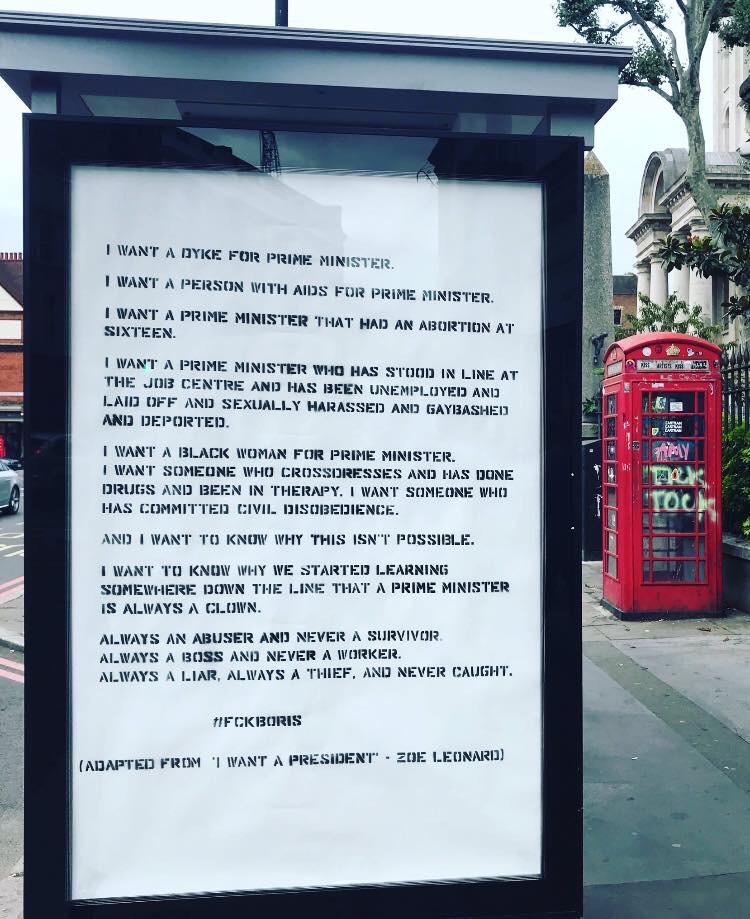 I WANT A DYKE FOR PRIME MINISTER.
I WANT A PERSON WITH AIDS FOR PRIME MINISTER.
I WANT A PRIME MINISTER THAT HAD AN ABORTION AT
SIXTEEN.
I WANT A PRIME MINISTER WHO HAS STOOD IN LINE AT
THE JOB CENTRE AND HAS BEEN UNEMPLOYED AND
LAID OFF AND SEXUALLY HARASSED AND GAYBASHED
AND DEPORTED.
I WANT A BLACK WOMAN FOR PRIME MINISTER.
I WANT SOMEONE WHO CROSSDRESSES AND HAS DONE
DRUGS AND BEEN IN THERAPY. I WANT SOMEONE WHO
HAS COMMITTED CIVIL DISOBEDIENCE.
AND I WANT TO KNOW WHY THIS ISN'T POSSIBLE.
I WANT TO KNOW WHY WE STARTED LEARNING
SOMEWHERE DOWN THE LINE THAT A PRIME MINISTER
IS ALWAYS A CLOWN.
ALWAYS AN ABUSER AND NEVER A SURVIVOR.
ALWAYS A BOSS AND NEVER A WORKER.
ALWAYS A LIAR, ALWAYS A THIEF, AND NEVER CAUGHT.
#FCKBORIS
(ADAPTED FROM 'I WANT A PRESIDENT' - ZOE LEONARD)
TOCK